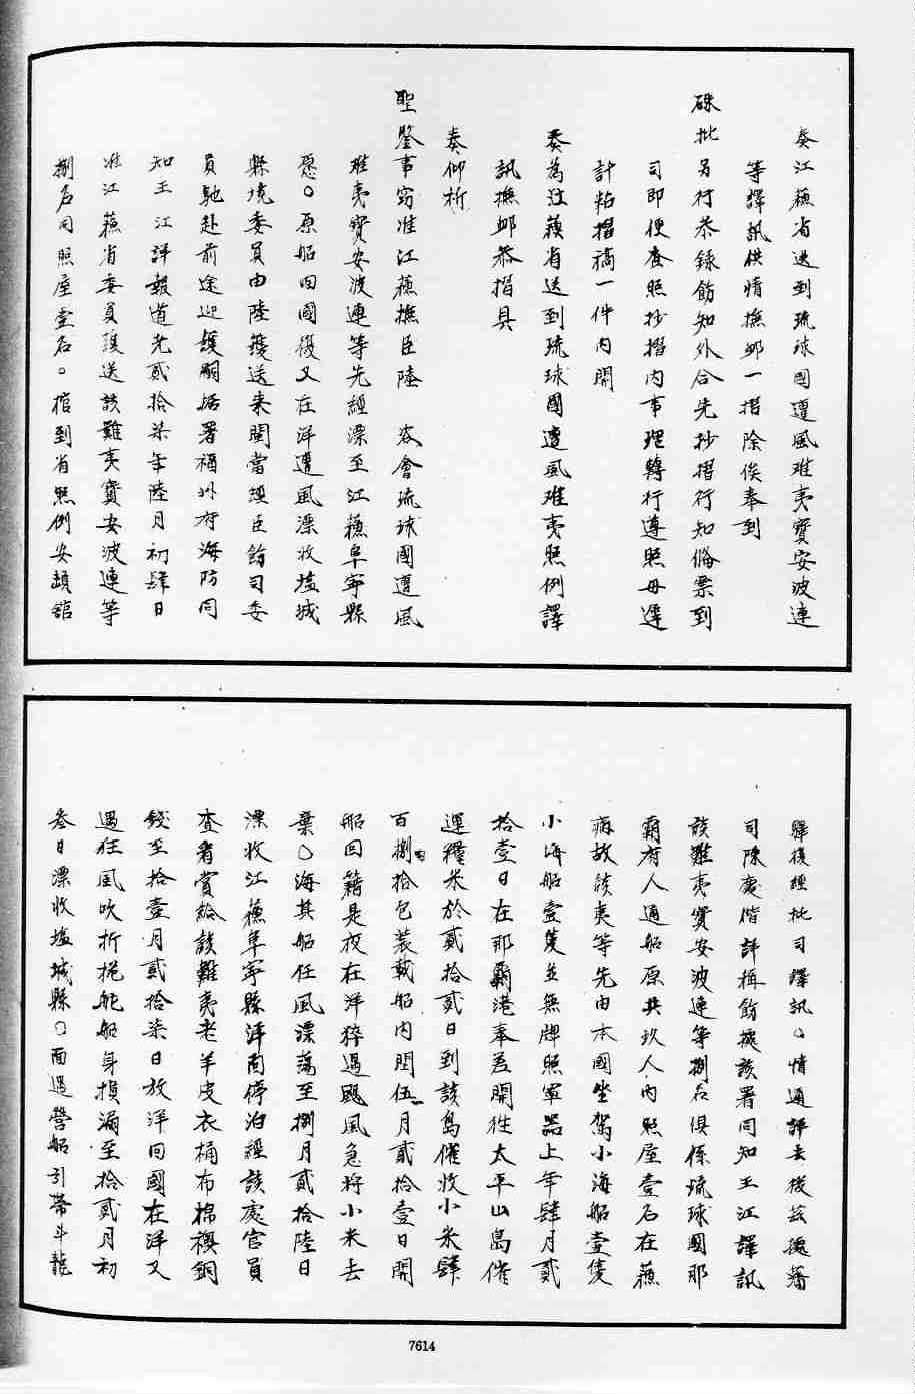 奏江蘇省送到琉球國遭風難夷寶安波連
等譯訊供情撫邮一摺除俟奉到
硃批另行恭錄飭知外合先抄摺行知俻票到
司即便查照抄摺内事理轉行遵照毋遲
計粘摺稿一件内開
奏為江蘓省送到琉球國遭風难夷照例譯
訊撫邮恭摺具
奏仰祈
聖鑒事窃准江蘓撫臣陸 咨會琉球國遭風
难夷寶安波連等先經漂至江蘓阜寕縣
愿〇原船回國後又在洋遭風漂收塩城
縣境委員由陸護送来閩當經臣飭司委
員馳赴前途迎護嗣據署福州府海防同
知王江詳報道光貳拾柒年陸月初肆日
准江蘓省委員護送該難夷寶安波連等
捌名同照屋壹名〇棺到省照例安頓舘
驛後經批司譯訊〇情通詳去後兹據藩
司陳慶偕詳稱飭據該署同知王江譯訊
該難夷寶安波連等捌名俱係琉球國那
霸府人通船原共玖人内照屋壹名在蘓
病故該夷等先由本國坐駕小海船壹隻
小海船壹隻並無牌照軍器上年肆月貳
拾壹日在那霸港奉差開徃太平山島催
運糧米於貳拾貳日到該島催收小米肆
百捌拾包装載船内閏伍月貳拾壹日開
船回籍是夜在洋猝遇颶風急将小米去
棄〇海其船任風漂蕩至捌月貳拾陸日
漂收江蘓阜寕縣洋面停泊經該處官員
查看賞給該難夷老羊皮衣桶布棉襖銅
錢至拾壹月貳拾柒日放洋回國在洋又
遇狂風吹折桅舵船身損漏至拾貳月初
叁日漂收塩城縣〇面遇營船引帶斗龍
7614